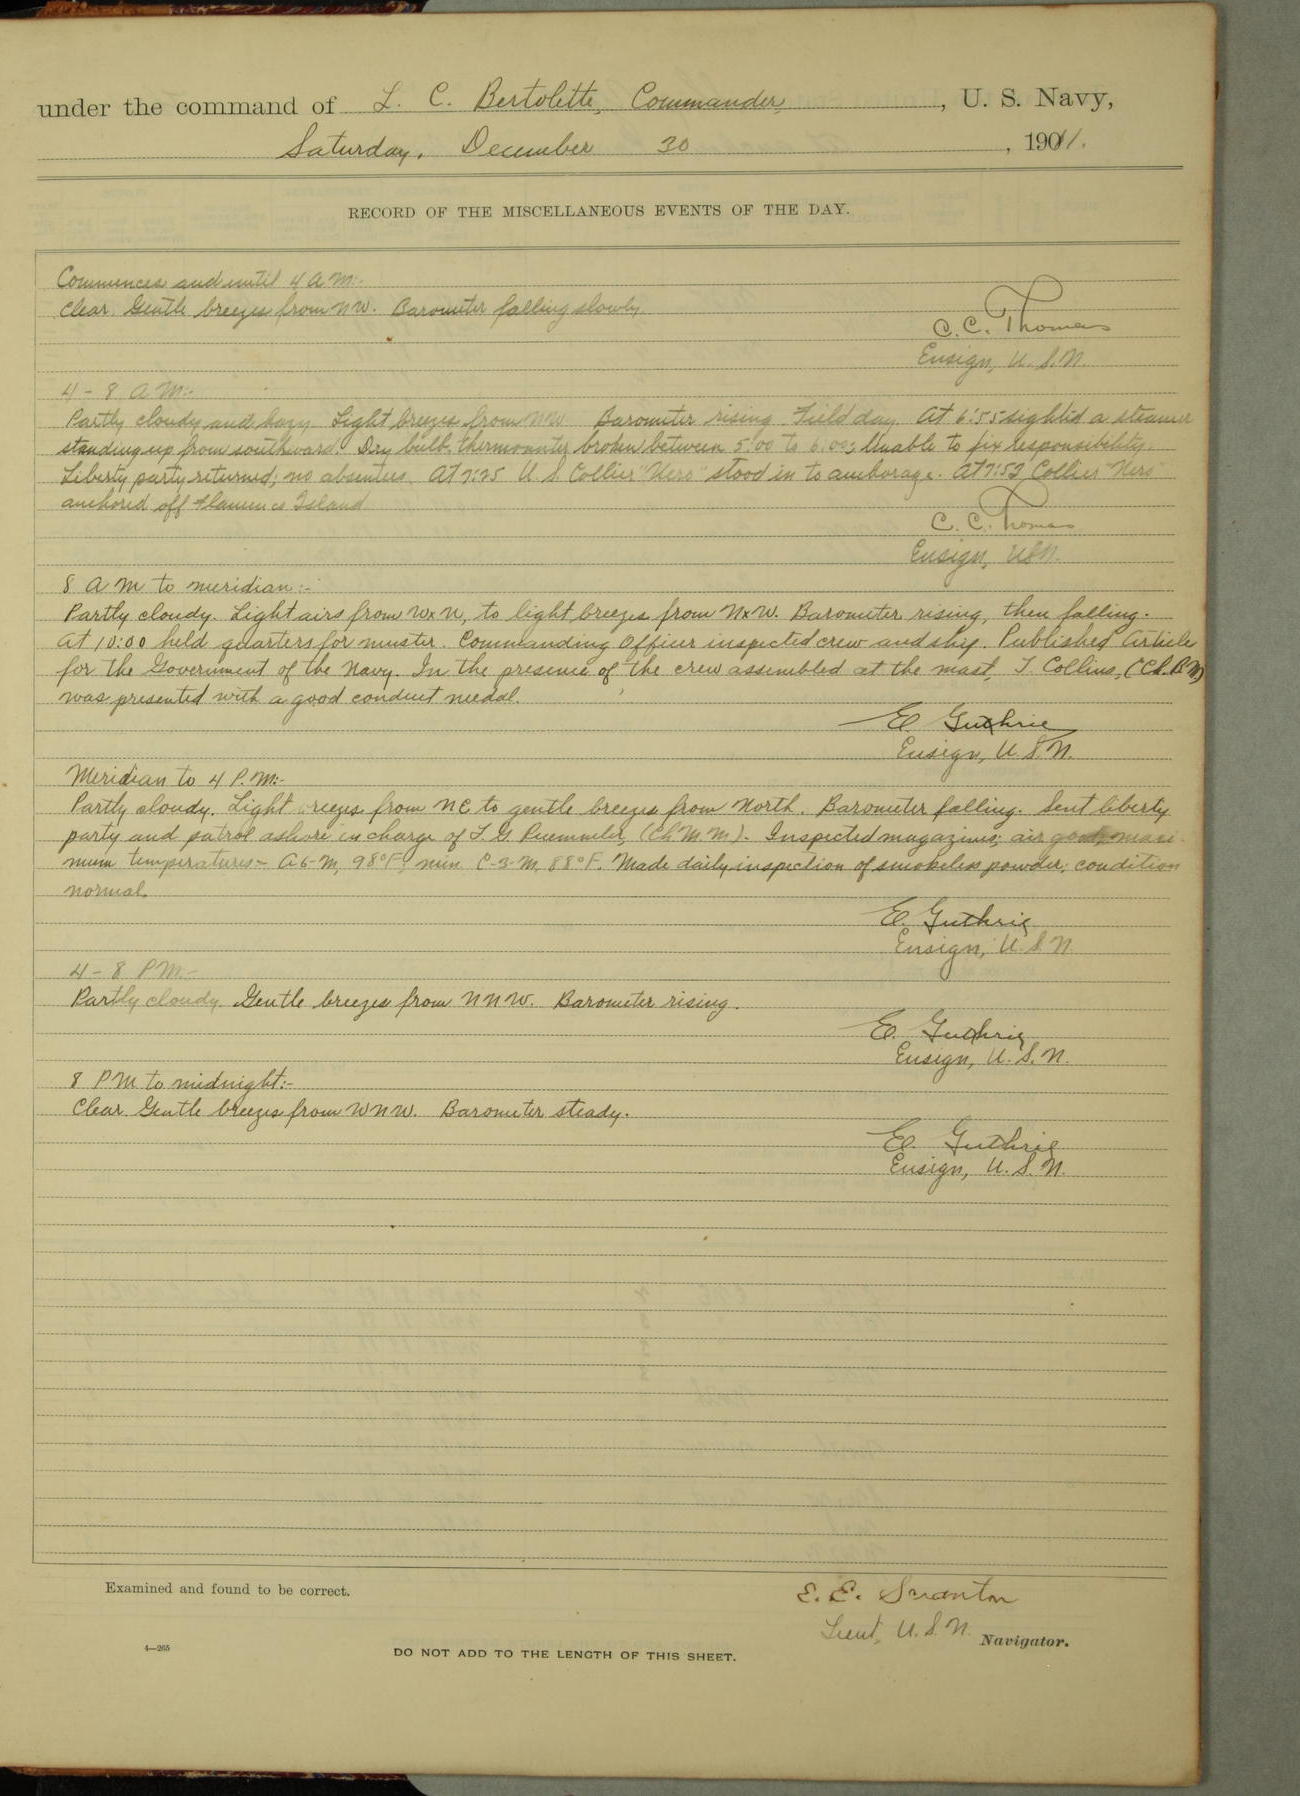 under the command of L. C. Bertolette, Commander, U. S. Navy,
Saturday, December 30, 1911.
RECORD OF THE MISCELLANEOUS EVENTS OF THE DAY.
Commences and until 4 A.M:-
Clear. Gentle breezes from NW. Barometer falling slowly
C. C. Thomas
Ensign, U. S. N.
4 - 8 A M:-
Partly cloudy and hazy. Light breezes from NNW Barometer rising. Field day. At 6:55 sighted a steamer
standing up from southward. Dry bulb thermometer broken between 5:00 to 6:00; Unable to fix responsibility.
Liberty party returned; no absentees. At 7:25 U. S. Collier "Nero" stood in to anchorage. At 7:52 Collier "Nero"
anchored off Flamenco Island
C. C. Thomas
Ensign, USN.
8 A M to meridian:-
Partly cloudy. Light airs from WxN, to light breezes from NxW. Barometer rising, then falling.
At 10:00 held quarters for muster. Commanding Officer inspected crew and ship. Published Article
for the Government of the Navy. In the presence of the crew assembled at the mast, T. Collins, (Ch. B M)
was presented with a good conduct medal.
E Guthrie
Ensign, U. S. N.
Meridian to 4 P.M:-
Partly cloudy. Light breezes from NE to gentle breezes from North. Barometer falling. Sent liberty
party and patrol ashore in charge of (Ch M M). Inspected magazines; air good; maxi-
mum temperatures - A-6-M, 98°F, min. C-3-M, 88°F. Made daily inspection of smokeless powder; condition
normal.
E. Guthrie
Ensign, U. S. N
4 - 8 P M:-
Partly cloudy. Gentle breezes from NNW. Barometer rising.
E. Guthrie
Ensign, U. S. N.
8 P M to midnight:-
Clear. Gentle breezes from WNW. Barometer steady.
E. Guthrie
Ensign, U. S. N.
Examined and found to be correct.
E. E. Scranton
Lieut, U. S. N. Navigator.
4—265
DO NOT ADD TO THE LENGTH OF THIS SHEET.